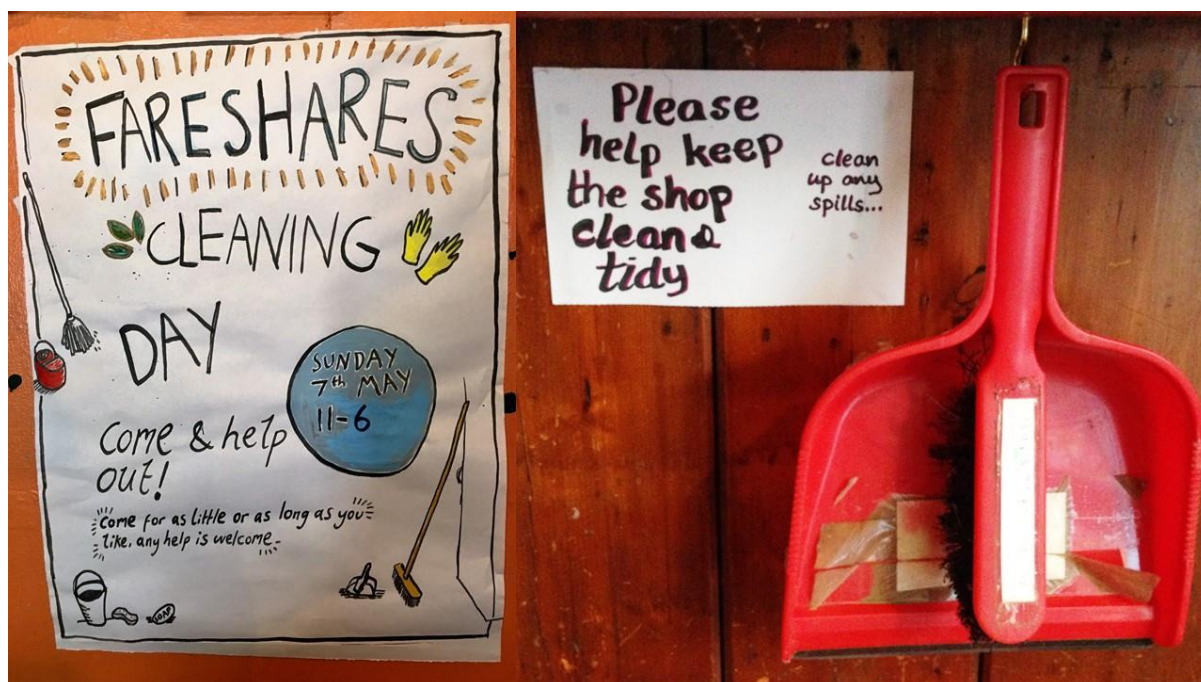 FARESHARES
CLEANING
DAY
SUNDAY
7th MAY
11-6
Come & help
out!
Come for as little or as long as you
like, any help is welcome
SOAP
Please
help keep
the shop
clean &
tidy
clean
up any
spills...